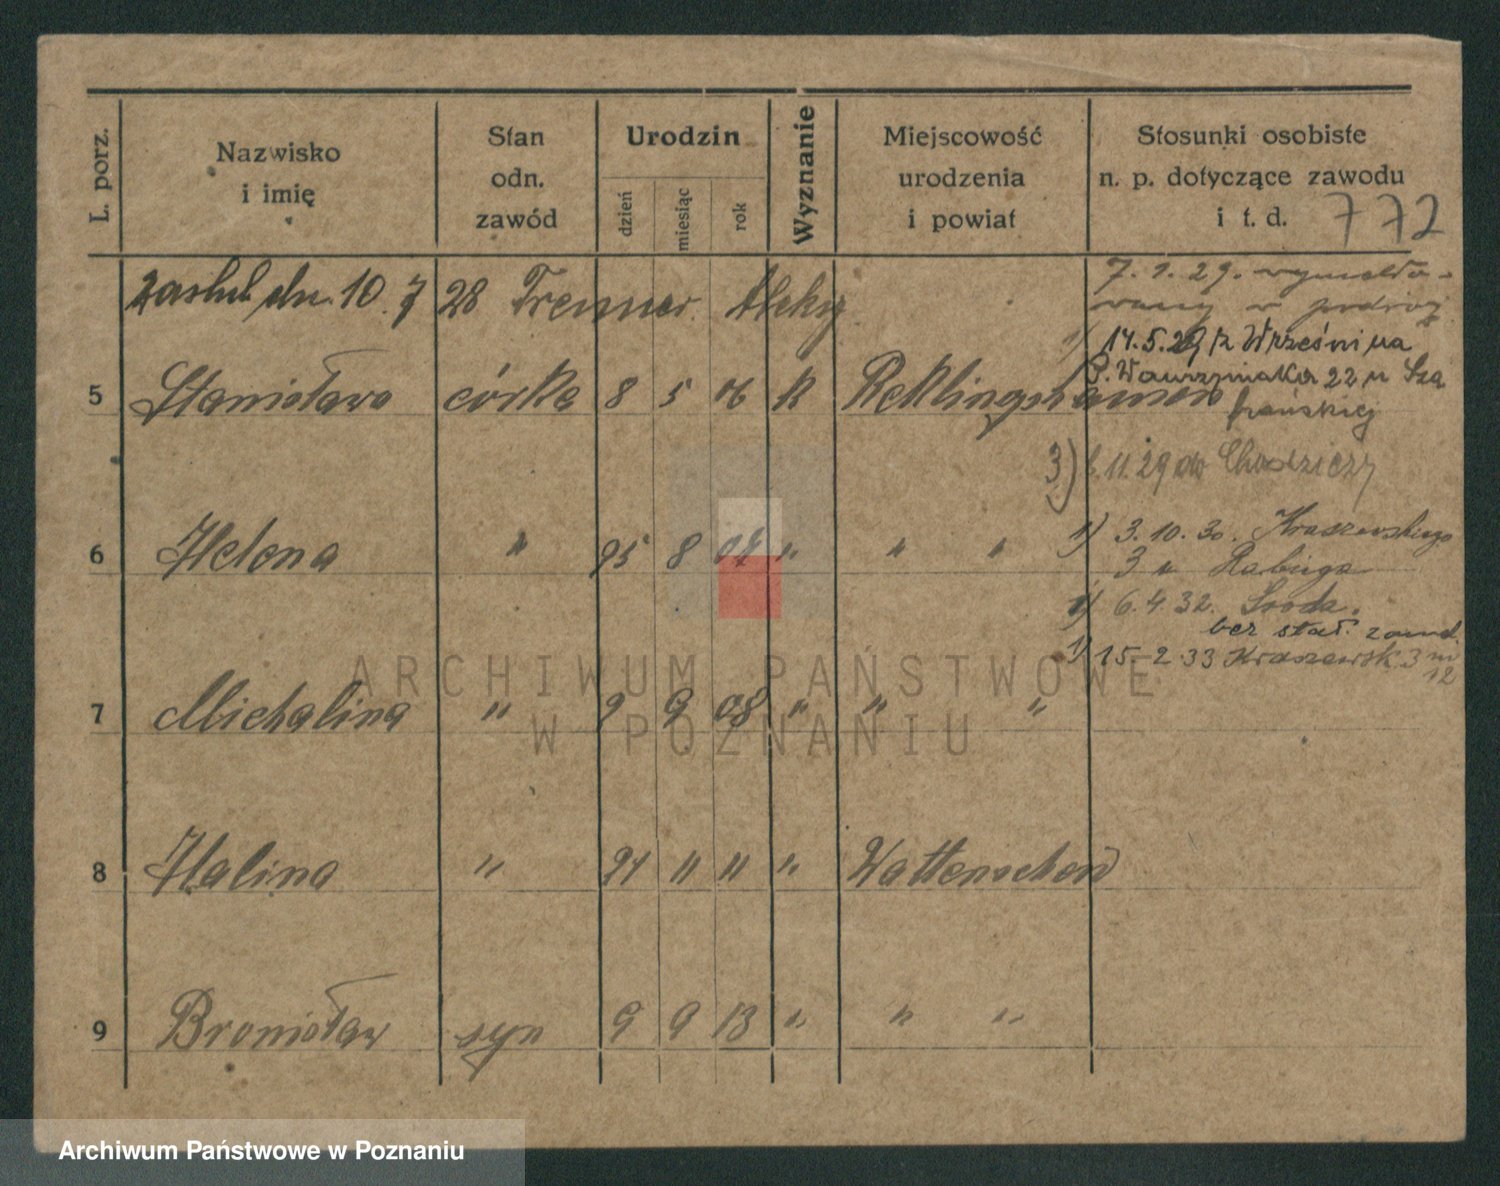 L. porz.
Nazwisko
i imię
Stan
odn.
zawód
Urodzin
dzień
miesiąc
rok
Wyznanie
Miejscowość
urodzenia
i powiat
Stosunki osobiste
n. p. dotyczące zawodu
i t. d. 772
zaślub. dn. 10. 7 28
7.1.29.
w podróż
1) 14.5.29 z Wrześni na
22 m
5 Stanisława córka 8 5 06 k Reklingshausen
3) 11.29 do Chodzieży
6 Helena " 25 8 07 " " "
1) 3.10.30. Kraszewskiego
3 u Rabiega
1) 6.4.32. Środa.
bez stał. zam.
1) 15-2 33 Kraszewsk. 3 m
12
7 Michalina " 9 9 08 " " "
8 Halina " 21 11 11 " Wattenscheid
9 Bronisław syn 9 9 13 " " "
ARCHIWUM PAŃSTWOWE
W POZNANIU
Archiwum Państwowe w Poznaniu